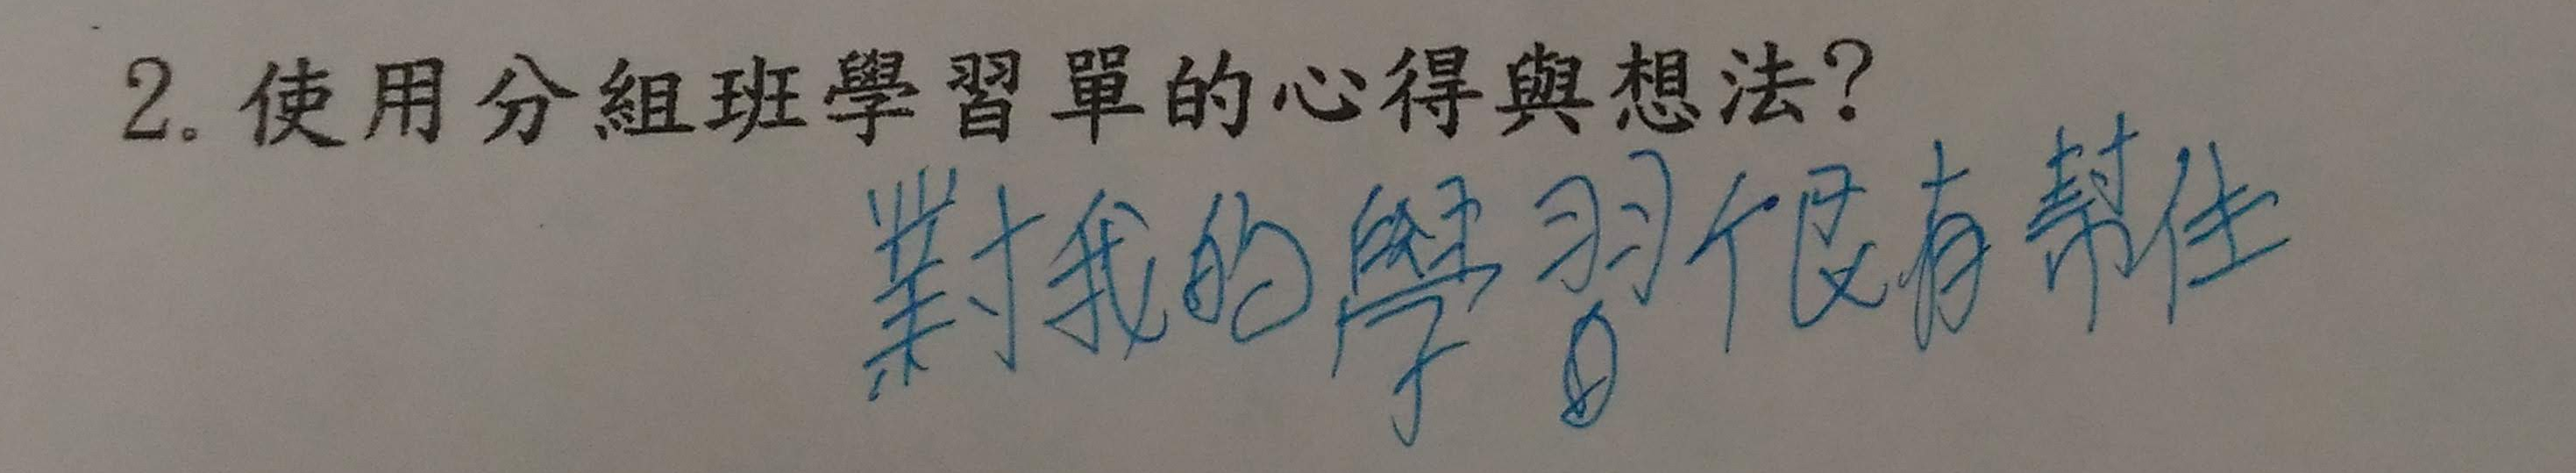 2. 使用分組班學習單的心得與想法?
對我的學習很有幫住